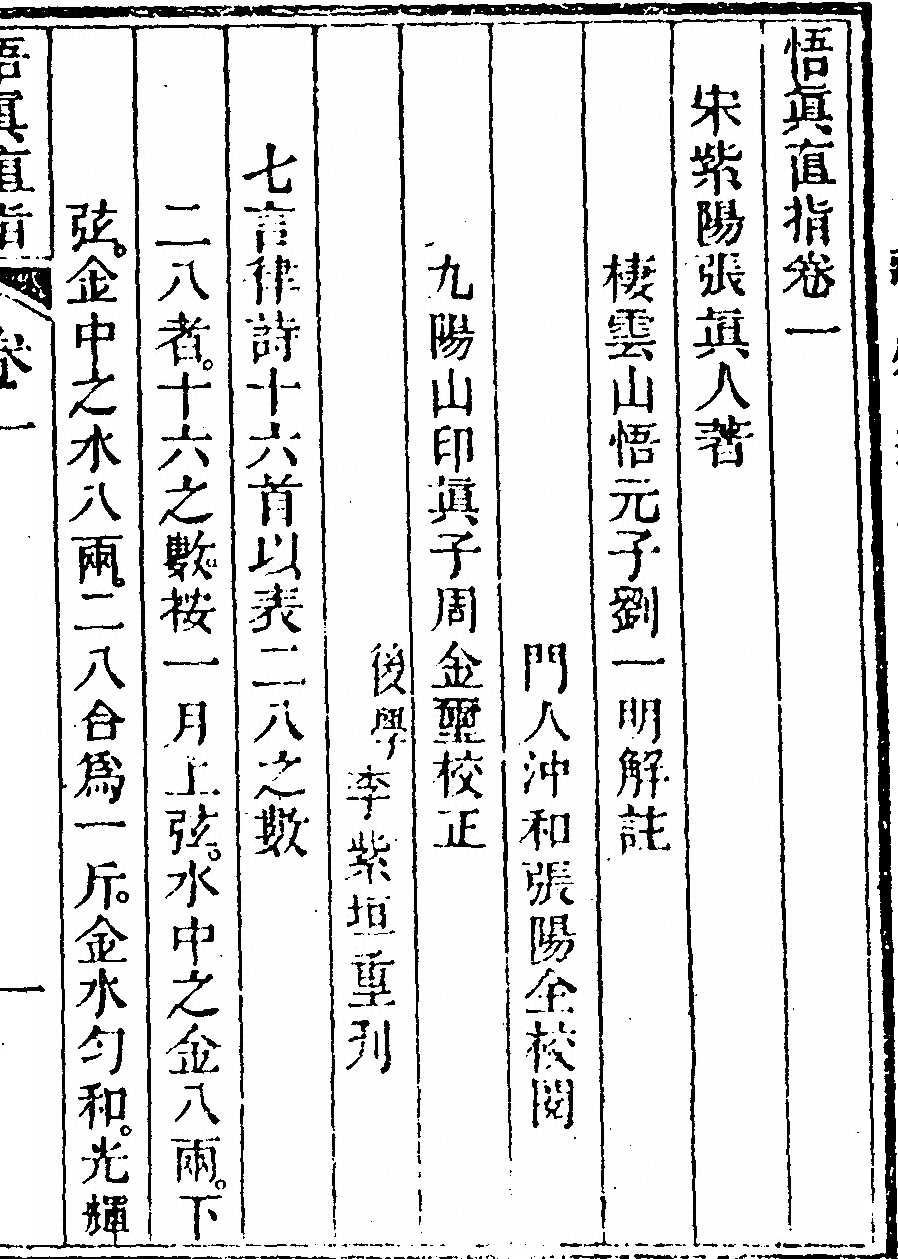 悟眞直指卷一
宋紫陽張眞人著
棲雲山悟元子劉一明解註
門人沖和張陽全校閱
九陽山印眞子周金璽校正
後學李紫垣重刋
七言律詩十六首以表二八之數
二八者。十六之數。按一月上弦。水中之金八兩。下
弦。金中之水八兩。二八合爲一斤。金水勻和。光輝
悟眞直指 卷一 一